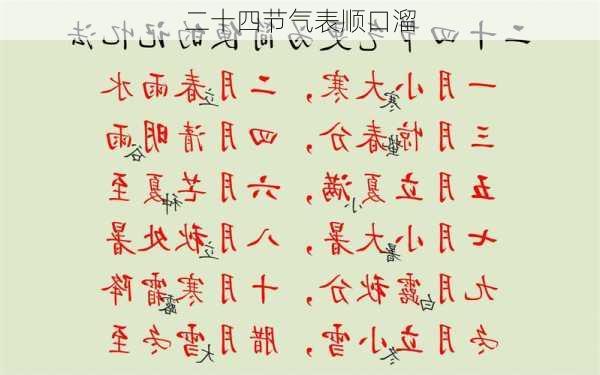 二十四节气表顺口溜
二十四节气更为简便的记忆法
一月小寒大寒，二月立春雨水
三月惊蛰春分，四月清明谷雨
五月立夏小满，六月芒种夏至
七月小暑大暑，八月立秋处暑
九月白露秋分，十月寒露霜降
冬月立冬小雪，腊月大雪冬至